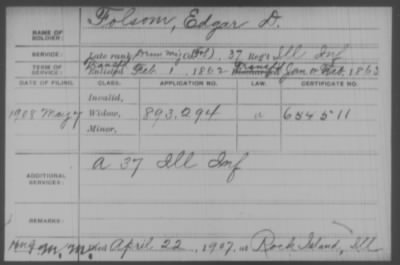 Folsom, Edgar D.
NAME OF SOLDIER:
SERVICE: Late rank, Drum Maj (Hos), 37 Reg't Ill Inf
TERM OF SERVICE: Enlisted Feb. 1, 1862 Discharged Jan. or Feb. 1863
DATE OF FILING. CLASS. APPLICATION NO. LAW. CERTIFICATE NO.
Invalid,
1908 May 7 Widow, 893,294 654511
Minor,
ADDITIONAL SERVICES: A 37 Ill Inf
REMARKS:
M. M. Died April 22, 1907, at Rock Island, Ill